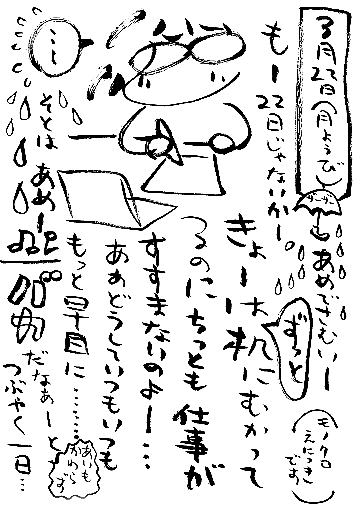 3月22日(月ようび)
ザーザー
あめでさむいー
(モノクロ
えにっき
です)
もー22日じゃないかー。
ずっと
きょーは机にむかって
るのにちっとも仕事が
すすまないのよー…
ああどうしていつもいつも
もっと早目に………
あいも
かわら
ず
…
そとはあめー
バカだなぁーと
つぶやく一日…